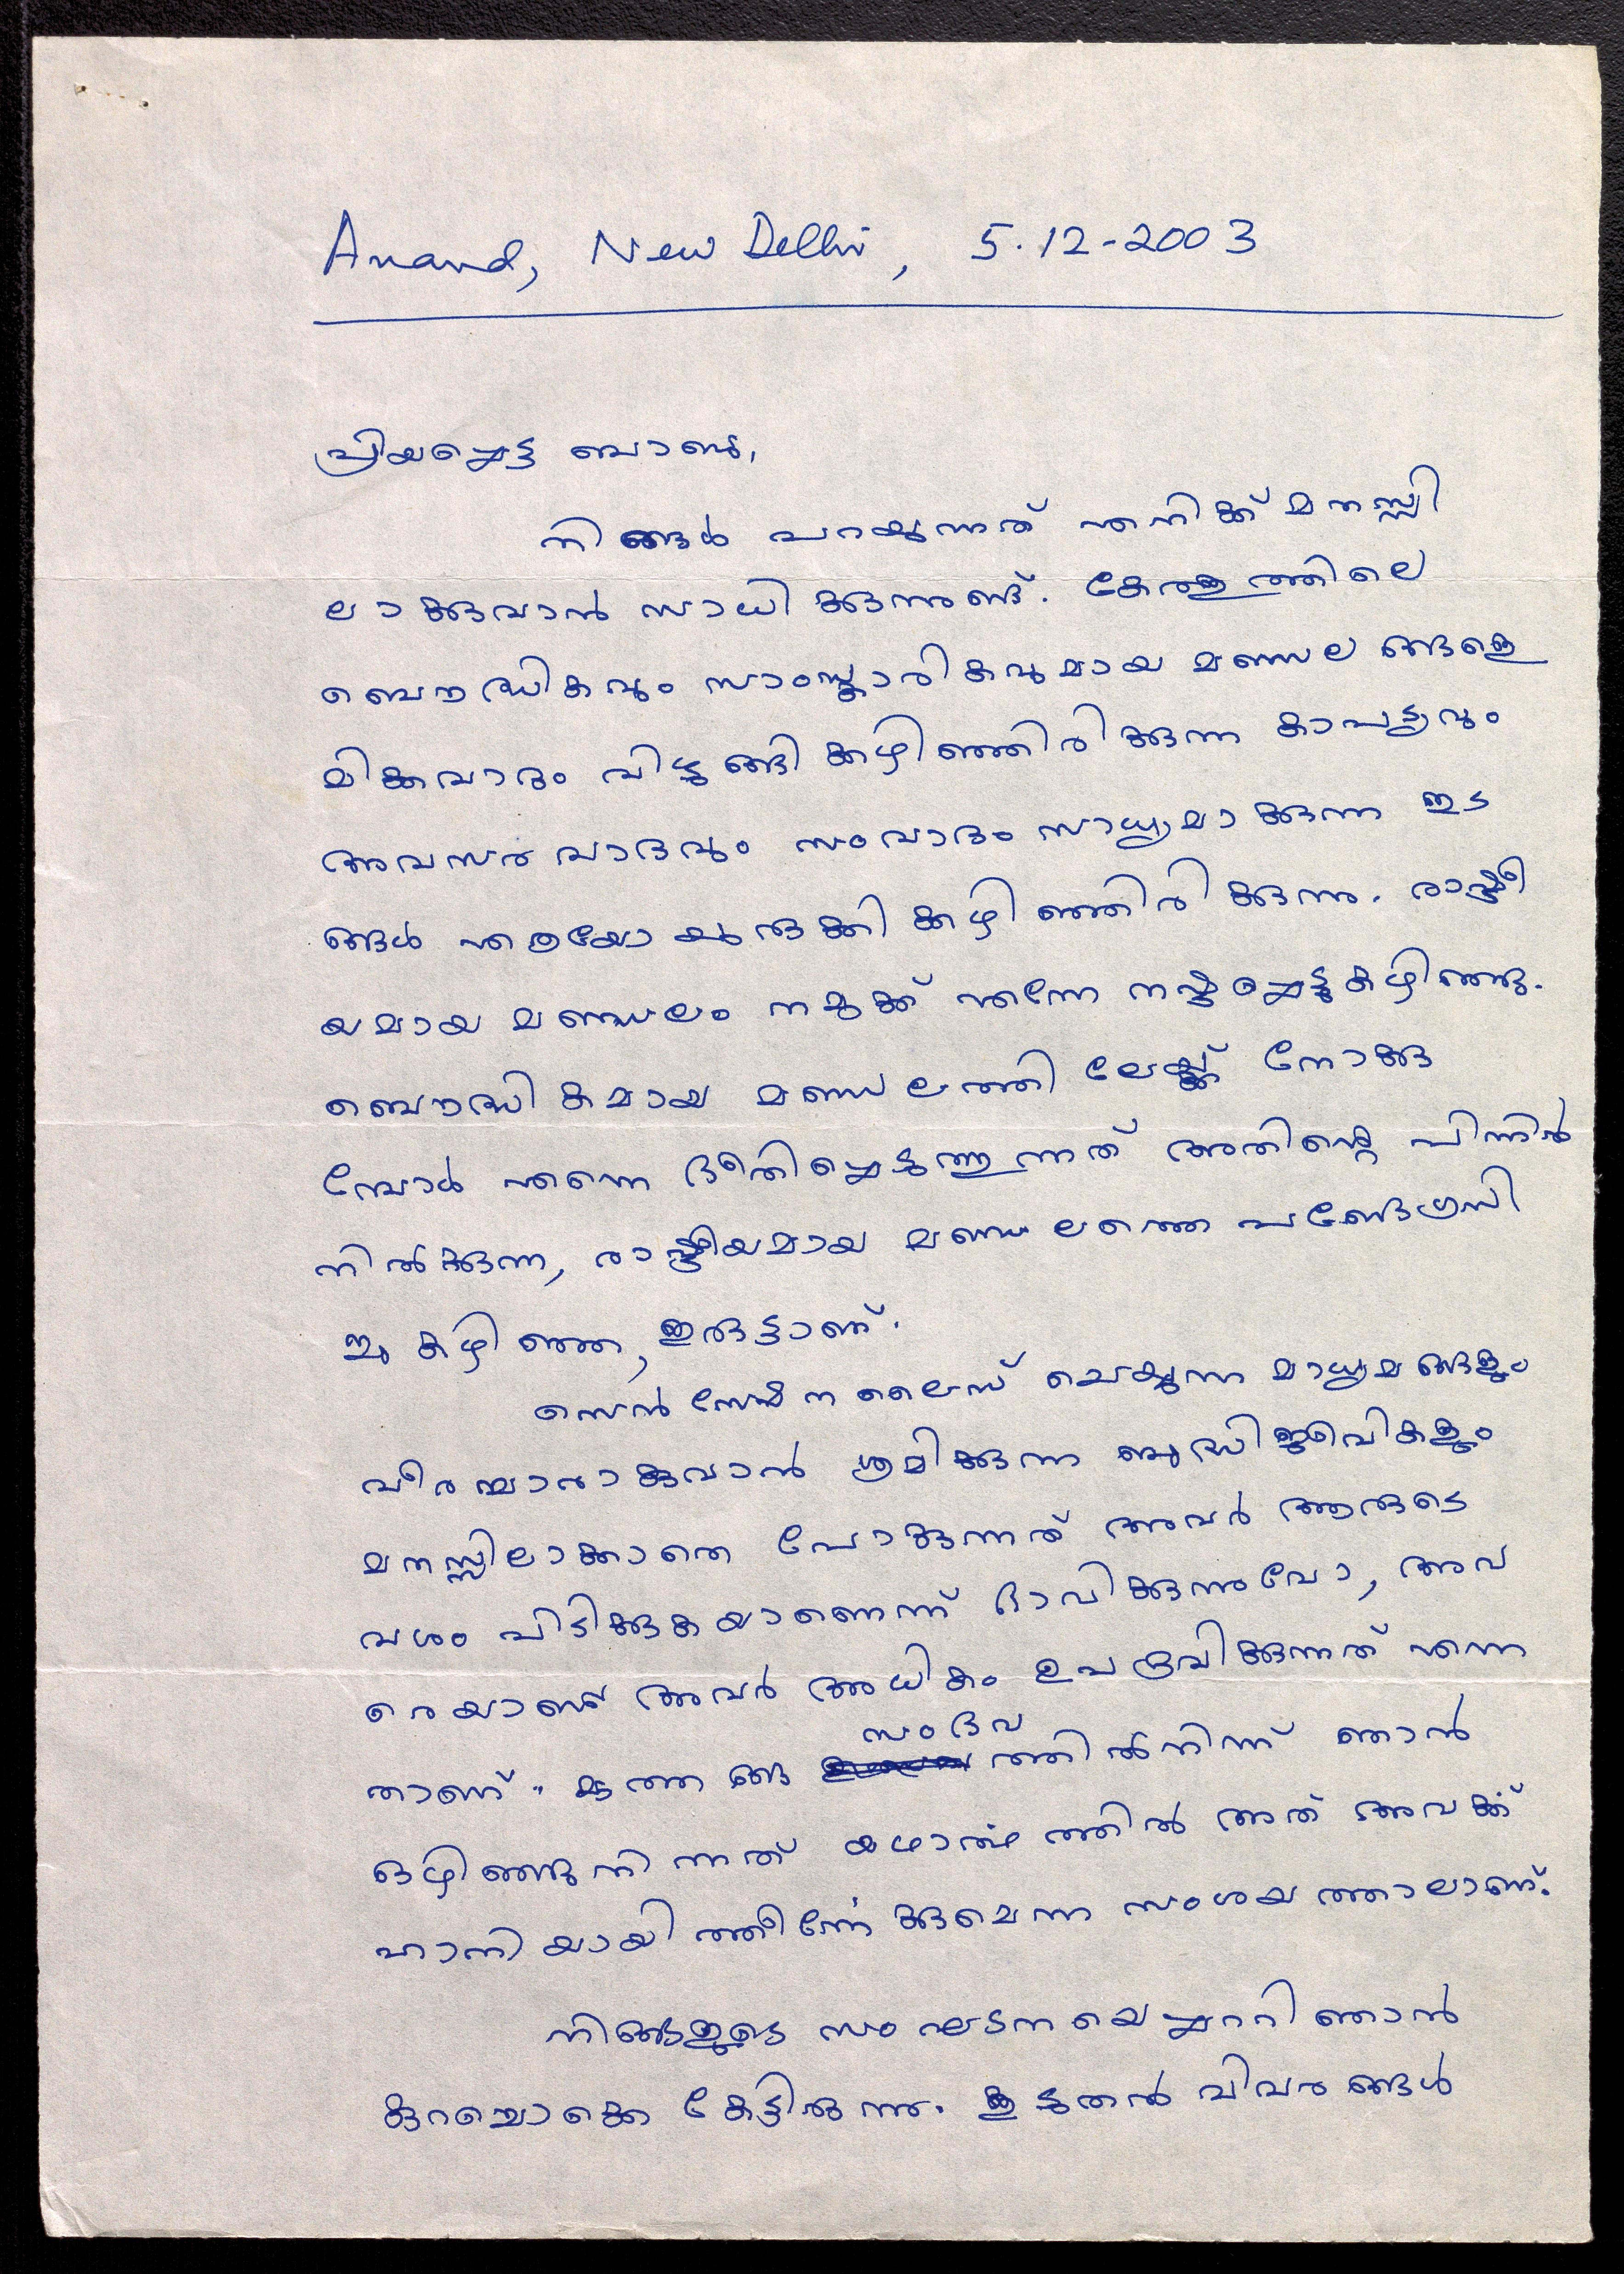 Anand, New Delhi, 5.12-2003
പ്രിയപ്പെട്ട ബാബു,
നിങ്ങൾ പറയുന്നത് എനിക്ക് മനസ്സി
ലാക്കുവാൻ സാധിക്കുന്നുണ്ട്. കേരളത്തിലെ
ബൌദ്ധികവും സാംസ്കാരികവുമായ മണ്ഡലങ്ങളെ
മിക്കവാറും വിഴുങ്ങിക്കഴിഞ്ഞിരിക്കുന്ന കാപട്യവും
അവസരവാദവും സംവാദം സാധ്യമാക്കുന്ന ഇട
ങ്ങൾ എത്രയോ ചുരുക്കിക്കഴിഞ്ഞിരിക്കുന്നു. രാഷ്ട്രീ
യമായ മണ്ഡലം നമുക്ക് എന്നേ നഷ്ടപ്പെട്ടുകഴിഞ്ഞു.
ബൌദ്ധികമായ മണ്ഡലത്തിലേയ്ക്ക് നോക്കു
മ്പോൾ എന്നെ ഭീതിപ്പെടുത്തുന്നത് അതിന്റെ പിന്നിൽ
നിൽക്കുന്ന, രാഷ്ട്രീയമായ മണ്ഡലത്തെ പണ്ടേ ഗ്രസി
ച്ചു കഴിഞ്ഞ, ഇരുട്ടാണ്.
സെൻസേഷനലൈസ് ചെയ്യുന്ന മാധ്യമങ്ങളും
വീരന്മാരാകുവാൻ ശ്രമിക്കുന്ന ബുദ്ധിജീവികളും
മനസ്സിലാക്കാതെ പോകുന്നത് അവർ ആരുടെ
വശം പിടിക്കുകയാണെന്ന് ഭാവിക്കുന്നുവോ, അവ
രെയാണ് അവർ അധികം ഉപദ്രവിക്കുന്നത് എന്ന
താണ്. മുത്തങ്ങ സംഭവത്തിൽനിന്ന് ഞാൻ
ഒഴിഞ്ഞുനിന്നത് യഥാർത്ഥത്തിൽ അത് അവർക്ക്
ഹാനിയായിത്തീർന്നേക്കുമെന്ന സംശയത്താലാണ്.
നിങ്ങളുടെ സംഘടനയെപ്പററി ഞാൻ
കുറച്ചൊക്കെ കേട്ടിരുന്നു. കൂടുതൽ വിവരങ്ങൾ